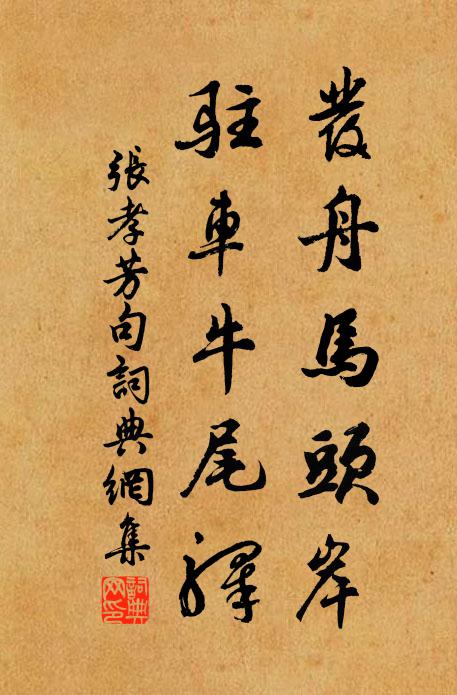 發舟馬頭岸
駐車牛尾驛
張孝芳句詞典網集
詞典网印